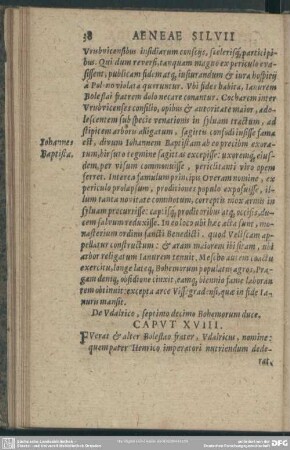 38 AENEAE SILVII
Vrubricensibus insidiarum conscijs, scelerisq; participi-
bus. Qui dum reversi, tanquam magno ex periculo eva-
sissent, publicam fidem atq; iusiurandum & iura hospitij
à Polono violata queruntur. Vbi fides habita, Ianurem
Boleslai fratrem dolo necare conantur. Cocharem inter
Vrubricenses consilio, opibus & autoritate maior, ado-
lescentem sub specie venationis in sylvam tractum, ad
stipitem arboris alligatum, sagittis confodi iussisse fama
Iohannes
Baptista.
est, divum Iohannem Baptistam ab eo precibus exora-
tum, hirsuto tegmine sagittas excepisse: uxoremq; eius-
dem, per visum commonuisse, periclitanti viro opem
ferret. Interea famulum principis Overam nomine, ex
periculo prolapsum, proditiones populo exposuisse, il-
lum tanta novitate commotum, correptis mox armis in
sylvam procurrisse: captisq; proditoribus atq; occisis, du-
cem salvum reduxisse. In eo loco ubi haec acta sunt, mo-
nasterium ordini sancti Benedicti, quod Velissam ap-
pellatur constructum: & aram maiorem ibi sitam, ubi
arbor religatum Ianurem tenuit. Mescho autem coactu
exercitu, longe lateq; Bohemorum populatur agros, Pra-
gam denique, obsidione cinxit, eamq; biennio fame laboran-
tem obtinuit: excepta arce Vissegradensi, quae in fide Ia-
nuris mansit.
De Vdalrico, septimo decimo Bohemorum duce.
CAPVT XVIII.
FVerat & alter Boleslao frater, Vdalricus, nomine:
quem pater Henrico imperatori nutriendum dede-
rat,